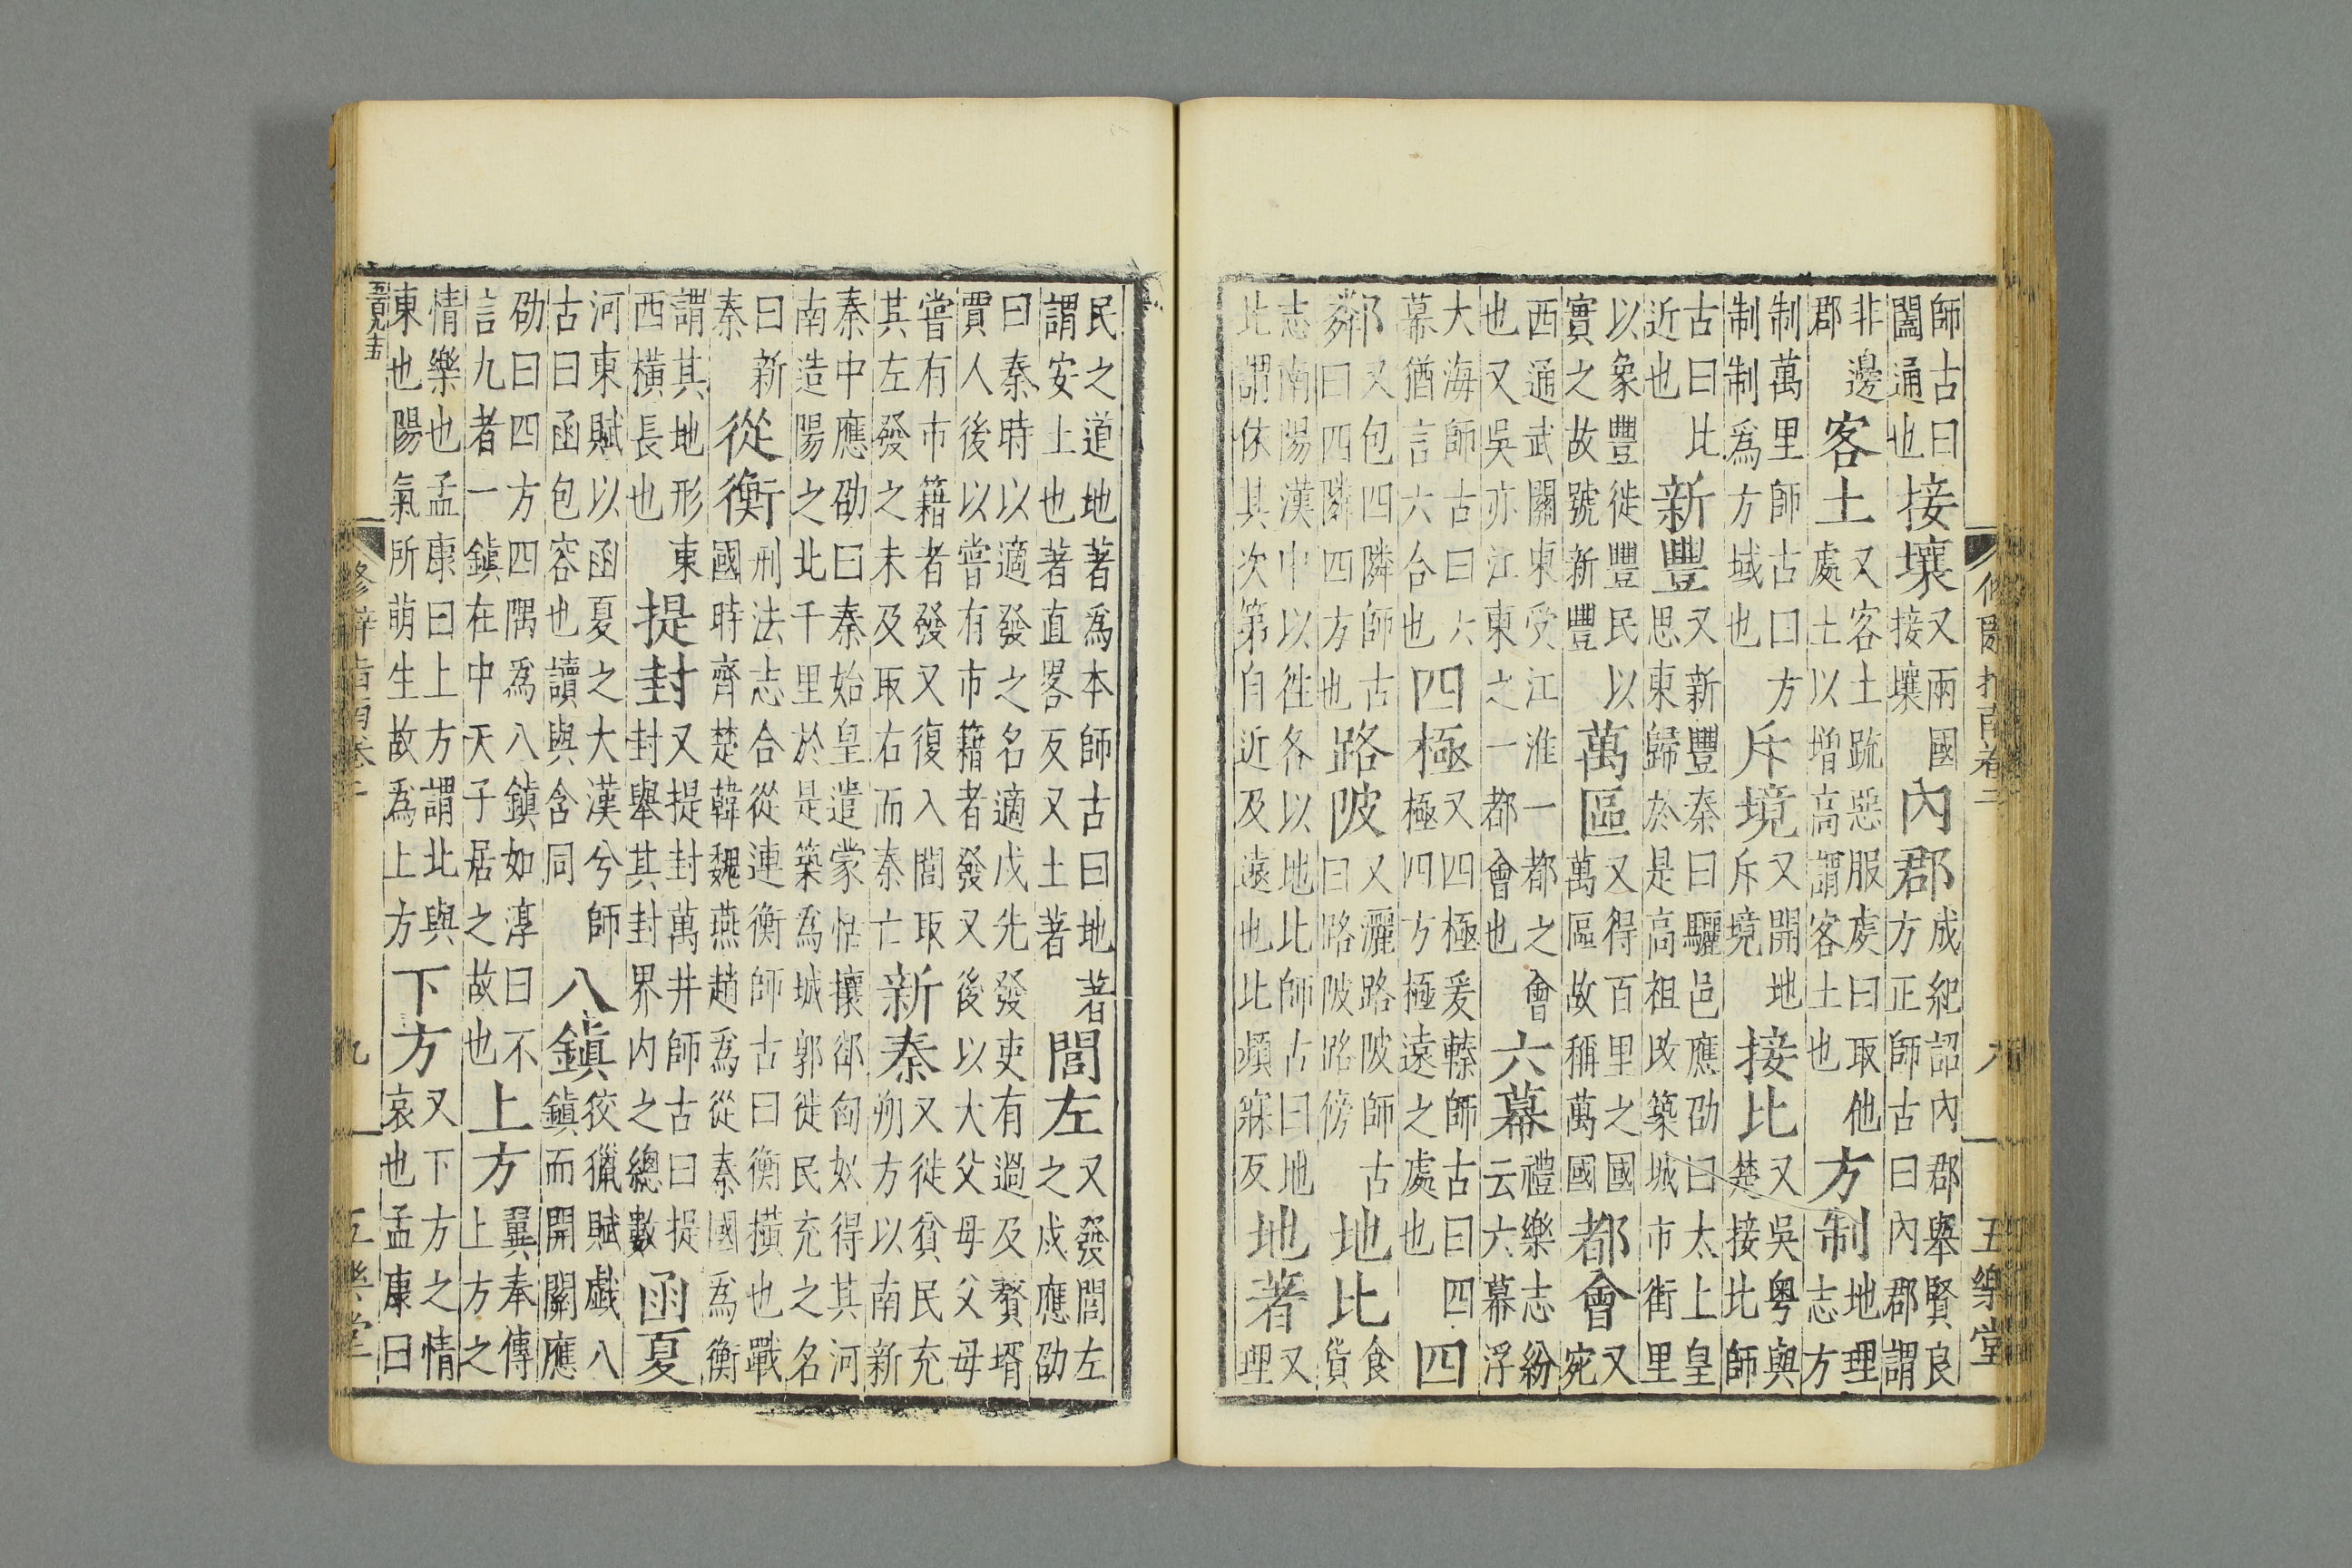 修辭指南卷二 八 五樂堂
師古曰闔通也接壤又兩國接壤內郡成紀詔內郡舉賢良方正師古曰內郡謂
非邊郡客土又客土疏惡服虔曰取他處土以增高謂客土也方制地理志方
制萬里師古曰方制制爲方域也斥境又開地斥境接比又吳粵與楚接比師
古曰比近也新豐又新豐秦曰驪邑應劭曰太上皇思東歸於是高祖改築城市街里
以象豐徙豐民以實之故號新豐萬區又得百里之國萬區故稱萬國都會又宛
西通武關東受江淮一都之會也又吳亦江東之一都會也六幕禮樂志紛云六幕浮
大海師古曰六幕猶言六合也四極又四極爰轃師古曰四極四方極遠之處也四
鄰又包四隣師古曰四隣四方也路陂又灑路陂師古曰路陂路傍地比食貨
志南陽漢中以往各以地比師古曰地比謂依其次第自近及遠也比頻寐反地著又理
民之道地著爲本師古曰地著謂安上也著直畧反又土著閭左又發閭左之戍應劭
曰秦時以適發之名適戍先發吏有過及贅壻賈人後以嘗有市籍者發又後以大父母父母
嘗有市籍者發又復入閭取其左發之未及取右而秦亡新秦又徙貧民充朔方以南新
秦中應劭曰秦始皇遣蒙恬攘郤匈奴得其河南造陽之北千里於是築爲城郭徙民充之名
曰新秦從衡刑法志合從連衡師古曰衡橫也戰國時齊楚韓魏燕趙爲從秦國爲衡
謂其地形東西橫長也提封又提封萬井師古曰提封舉其封封界内之總數函夏
河東賦以函夏之大漢兮師古曰函包容也讀與含同八鎮狡獵賦戯八鎮而開關應
劭曰四方四隅爲八鎮如淳曰不言九者一鎮在中天子居之故也上方翼奉傳上方之
情樂也孟康曰上方謂北與東也陽氣所萌生故爲上方下方又下方之情哀也孟康曰
五百九十五
修辭指南卷二 九 五樂堂